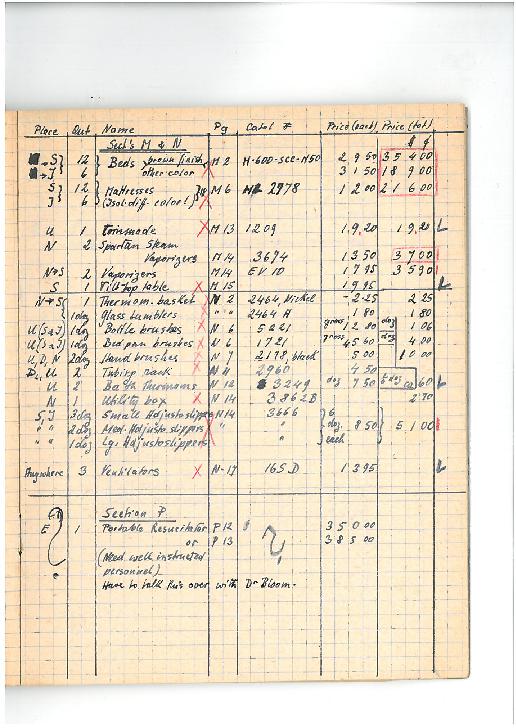 Place Qnt Name Pg Catal # Price (each) Price (tot)
Sect's M & N $ ¢
S} 12 Beds {brown finish M 2 H-600-SCE-M50 2 9 50 3 5 4 00
J} 6 other color X 3 1 50 1 8 9 00
S} 12 Mattresses M 6 2978 1 2 00 2 1 6 00
J} 6 (Isol. diff. color!) X
U 1 Commode X M 13 1209 19,20 19,20 L
N 2 Spartan Steam
Vaporizers M14 3674 13 50 37 00
N→S 2 Vaporizers M14 EV 10 17 95 35 90
S 1 Tilt top table X M 15 19 95 L
N→S 1 Thermom. basket X N 2 2464, Nickel - 2.25 2 25
1 doz Glass tumblers X " " 2464 H 1 80 1 80
U (S&J) 1 doz Bottle brushes X N 6 5221 gross 12 80 doz 1 06
U (S&J) 1 doz Bedpan brushes X N 6 1721 gross 45 60 4 00
U, D, N 2 doz Hand brushes X N 7 2178, black 5 00 10 00
D, U 2 Tubing rack X N 11 2960 4 50
U 2 Bath Thermoms X N 12 3249 doz 7 50 60 L
N 1 Utility box X N 14 3862B 2 70
S, J 3 doz Small Adjustoslippers N14 3666 6
" " 2 doz Med. Adjusto slippers " " doz. 8 50 5 1 00
" " 1 doz Lg. Adjustoslippers X " each
Anywhere 3 Ventilators X N-17 165D 13 95 L
Section P.
E ? 1 Portable Resucitator P 12 ? 3 5 0 00
or P 13 3 8 5 00
(Need well instructed
personnel)
Have to talk this over with Dr Bloom.